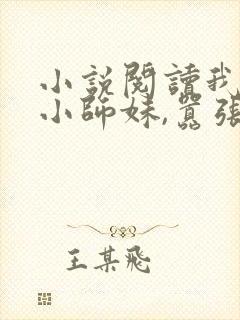 小說閱讀我
小師妹,囂張
王某飛